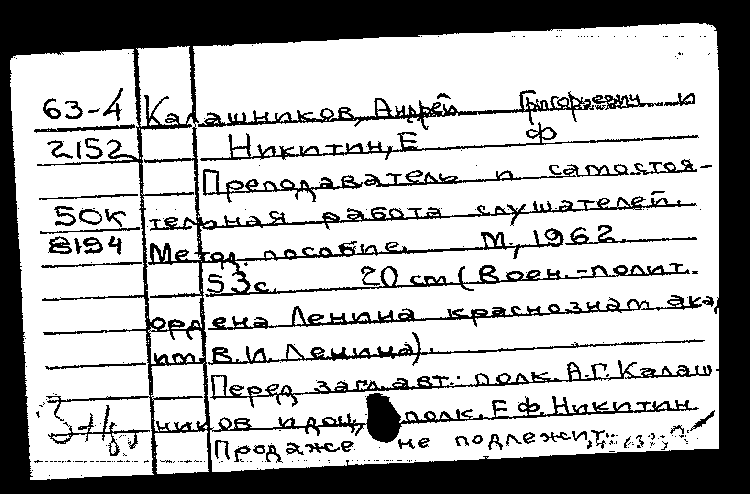 63-4 Калашников, Андрей Григорьевич и
2152 Никитин, Е Ф
Преподаватель и самостоя-
50к тельная работа слушателей.
8194 Метод. пособие. М., 1962.
53с. 20 см (Воен.-полит.
ордена Ленина краснознам. ака
им. В.И. Ленина).
Перед загл. авт.: полк. А.Г. Калаш-
ников и доц., полк. Е.Ф. Никитин
Продаже не подлежит.